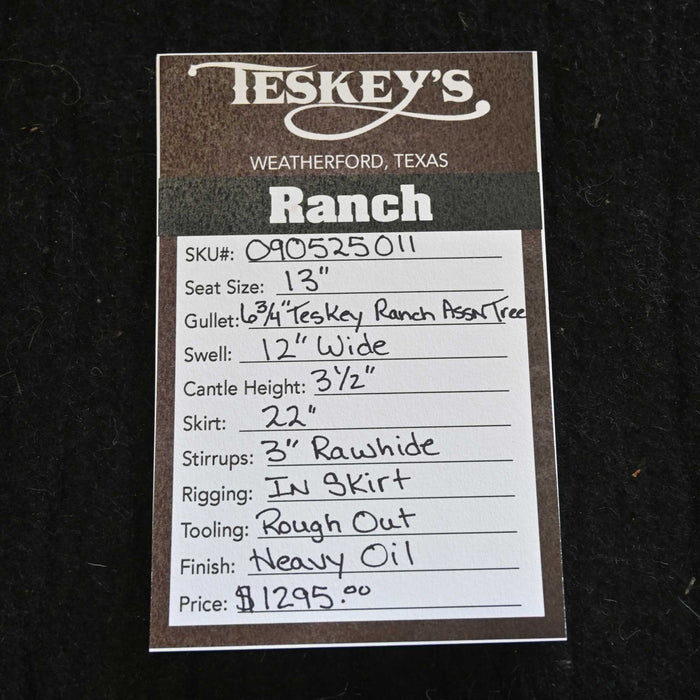 TESKEY'S
WEATHERFORD, TEXAS
Ranch
SKU#: 090525011
Seat Size: 13"
Gullet: 6 3/4" Teskey Ranch Assn Tree
Swell: 12" Wide
Cantle Height: 3 1/2"
Skirt: 22"
Stirrups: 3" Rawhide
Rigging: IN Skirt
Tooling: Rough Out
Finish: Heavy Oil
Price: $1295.00